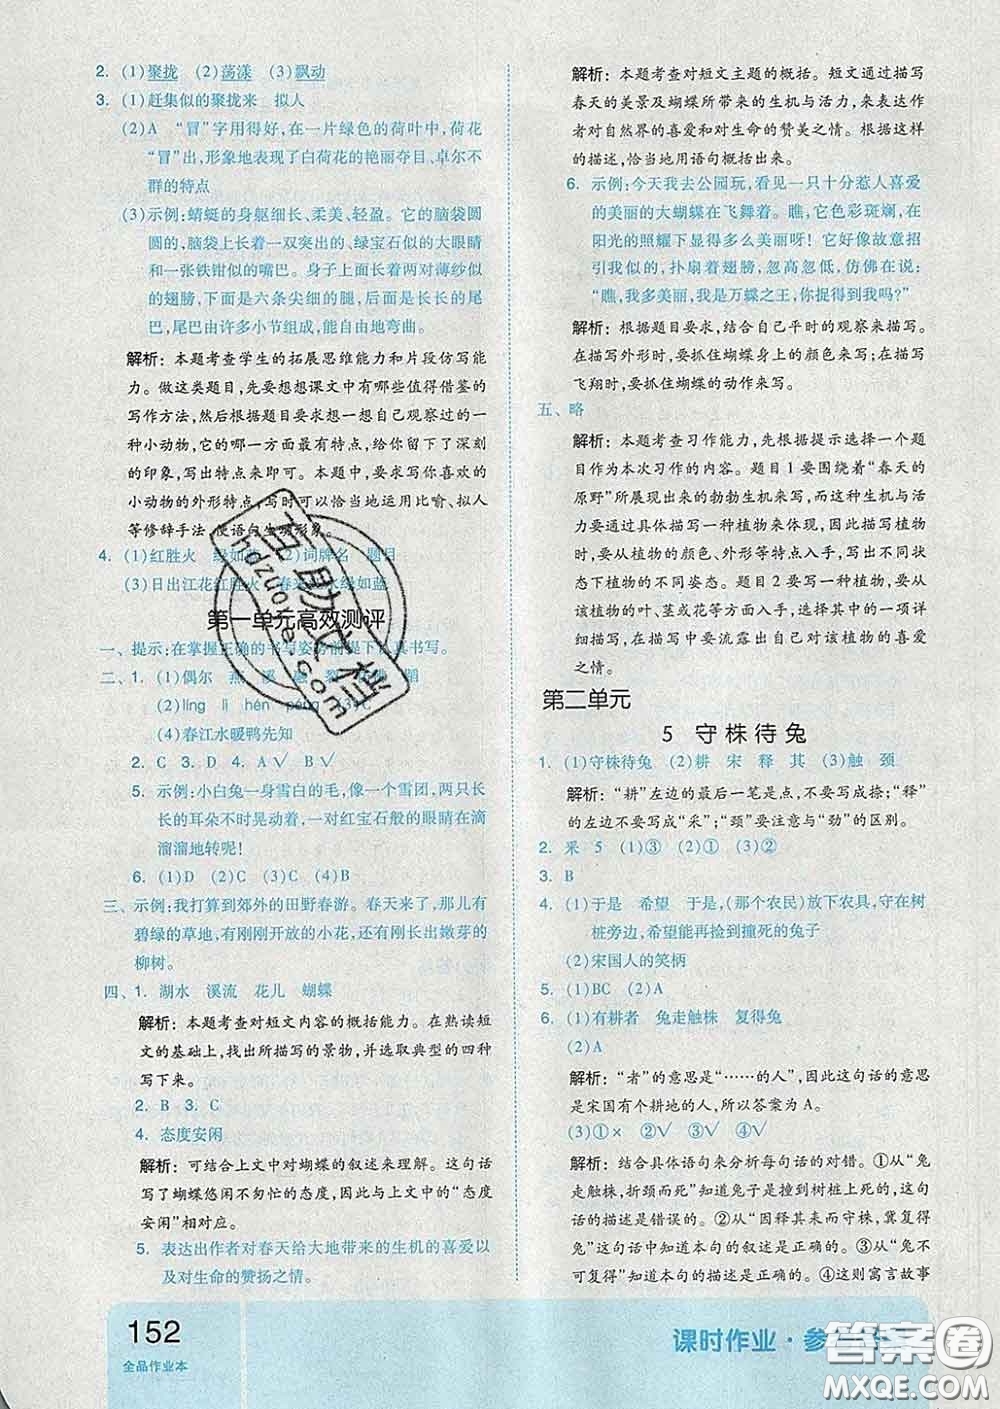 2. (1)聚拢 (2)荡漾 (3)飘动
3. (1)赶集似的聚拢来 拟人
(2)A “冒”字用得好,在一片绿色的荷叶中,荷花
“冒”出,形象地表现了白荷花的艳丽夺目、卓尔不
群的特点
(3)示例:蜻蜓的身躯细长、柔美、轻盈。它的脑袋圆
圆的,脑袋上长着一双突出的、绿宝石似的大眼睛
和一张铁钳似的嘴巴。身子上面长着两对薄纱似
的翅膀,下面是六条尖细的腿,后面是长长的尾
巴,尾巴由许多小节组成,能自由地弯曲。
解析:本题考查学生的拓展思维能力和片段仿写能
力。做这类题目,先要想想课文中有哪些值得借鉴的
写作方法,然后根据题目要求想一想自己观察过的一
种小动物,它的哪一方面最有特点,给你留下了深刻
的印象,写出特点来即可。本题中,要求写你喜欢的
小动物的外形特点,写时可以恰当地运用比喻、拟人
等修辞手法,使语句生动形象。
4. (1)红胜火 绿如蓝 (2)词牌名 题目
(3)日出江花红胜火 春来 水绿如蓝
第一单元高效测评
一、提示:在掌握正确的书写姿势前提下认真书写。
二、1. (1)偶尔 燕 溪 融
(2)líng lì hén péng (3)C
(4)春江水暖鸭先知
2. C 3. D 4. A√ B√
5. 示例:小白兔一身雪白的毛,像一个雪团,两只长
长的耳朵不时晃动着,一对红宝石般的眼睛在滴
溜溜地转呢!
6. (1)D (2)C (3)C (4)B
三、示例:我打算到郊外的田野春游。春天来了,那儿有
碧绿的草地,有刚刚开放的小花,还有刚长出嫩芽的
柳树。
四、1. 湖水 溪流 花儿 蝴蝶
解析:本题考查对短文内容的概括能力。在熟读短
文的基础上,找出所描写的景物,并选取典型的四种
写下来。
2. B 3. C
4. 态度安闲
解析:可结合上文中对蝴蝶的叙述来理解。这句话
写了蝴蝶悠闲不匆忙的态度,因此与上文中的“态度
安闲”相对应。
5. 表达出作者对春天给大地带来的生机的喜爱以
及对生命的赞扬之情。
解析:本题考查对短文主题的概括。短文通过描写
春天的美景及蝴蝶所带来的生机与活力,表达出作
者对自然界的喜爱和对生命的赞美之情。根据这样
的描述,恰当地用语句概括出来。
6. 示例:今天我去公园玩,看见一只十分惹人喜爱
的美丽的大蝴蝶在飞舞着。瞧,它色彩斑斓,在
阳光的照耀下显得多么美丽呀!它好像故意招
引我似的,扑扇着翅膀,忽高忽低,仿佛在说:
“瞧,我多美丽,我是万蝶之王,你捉得到我吗?”
解析:根据题目要求,结合自己平时的观察来描写。
在描写外形时,要抓住蝴蝶身上的颜色来写。在描写
飞翔时,要抓住蝴蝶的动作来写。
五、略
解析:本题考查习作能力,先根据提示选择一个题
目作为本次习作的内容。题目1要围绕着“春天的
原野”所展现出来的勃勃生机来写,而这种生机与活
力要通过具体描写一种植物来体现,因此描写植物
时,要从植物的颜色、外形等特点入手,写出不同状
态下植物的不同姿态。题目2要写一种植物,要从
该植物的叶、茎或花等方面入手,选择其中的一项详
细描写,在描写中要流露出自己对该植物的喜爱
之情。
第二单元
5 守株待兔
1. (1)守株待兔 (2)耕 宋 释 其 (3)触 颈
解析:“耕”左边的最后一笔是点,不要写成捺;“释”
的左边不要写成“采”;“颈”要注意与“劲”的区别。
2. 釆 5 (1)③ (2)① (3)②
3. B
4. (1)于是 希望 于是,(那个农民)放下农具,守在树
桩旁边,希望能再捡到撞死的兔子
(2)宋国人的笑柄
5. (1)BC (2)A
6. (1)有耕者 兔走触株 复得兔
(2)A
解析:“者”的意思是“……的人”,因此这句话的意思
是宋国有个耕地的人,所以答案为A。
(3)①× ②√ ③√ ④√
解析:结合具体语句来分析每句话的对错。①从“兔
走触株,折颈而死”知道兔子是撞到树桩上死的,这句
话的描述是错误的。②从“因释其耒而守株,冀复得
兔”这句话中知道本句的叙述是正确的。③从“兔不
可复得”知道本句的描述是正确的。④这则寓言故事
152
全品作业本
课时作业·参
答案圈
MXQE.COM